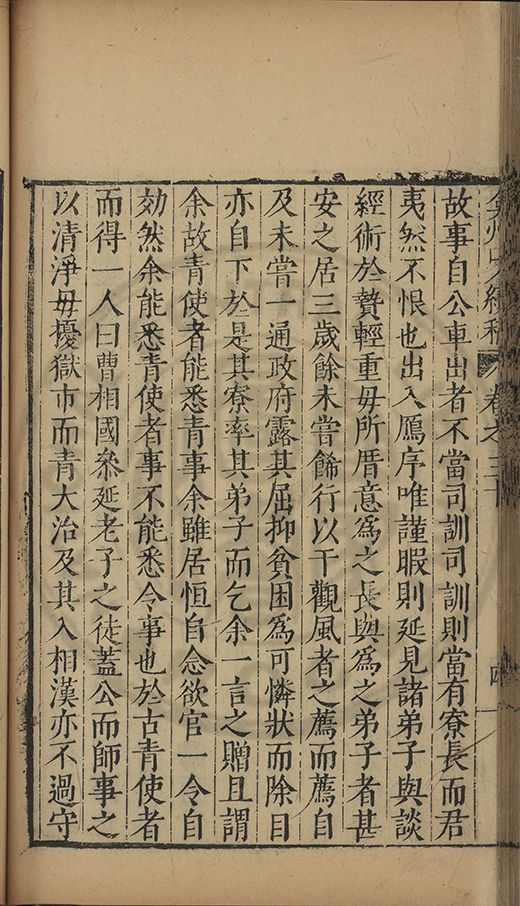 弇州山人續稿 卷之三十 四
故事自公車出者不當司訓司訓則當有寮長而君
夷然不恨也出入鴈序唯謹暇則延見諸弟子與談
經術於贄輕重毋所厝意爲之長與爲之弟子者甚
安之居三歲餘未嘗餙行以干觀風者之薦而薦自
及未嘗一通政府露其屈抑貧困爲可憐狀而除目
亦自下於是其寮率其弟子而乞余一言之贈且謂
余故青使者能悉青事余雖居恒自念欲官一令自
効然余能悉青使者事不能悉令事也於古青使者
而得一人曰曹相國叅延老子之徒蓋公而師事之
以清淨毋擾獄市而青大治及其入相漢亦不過守